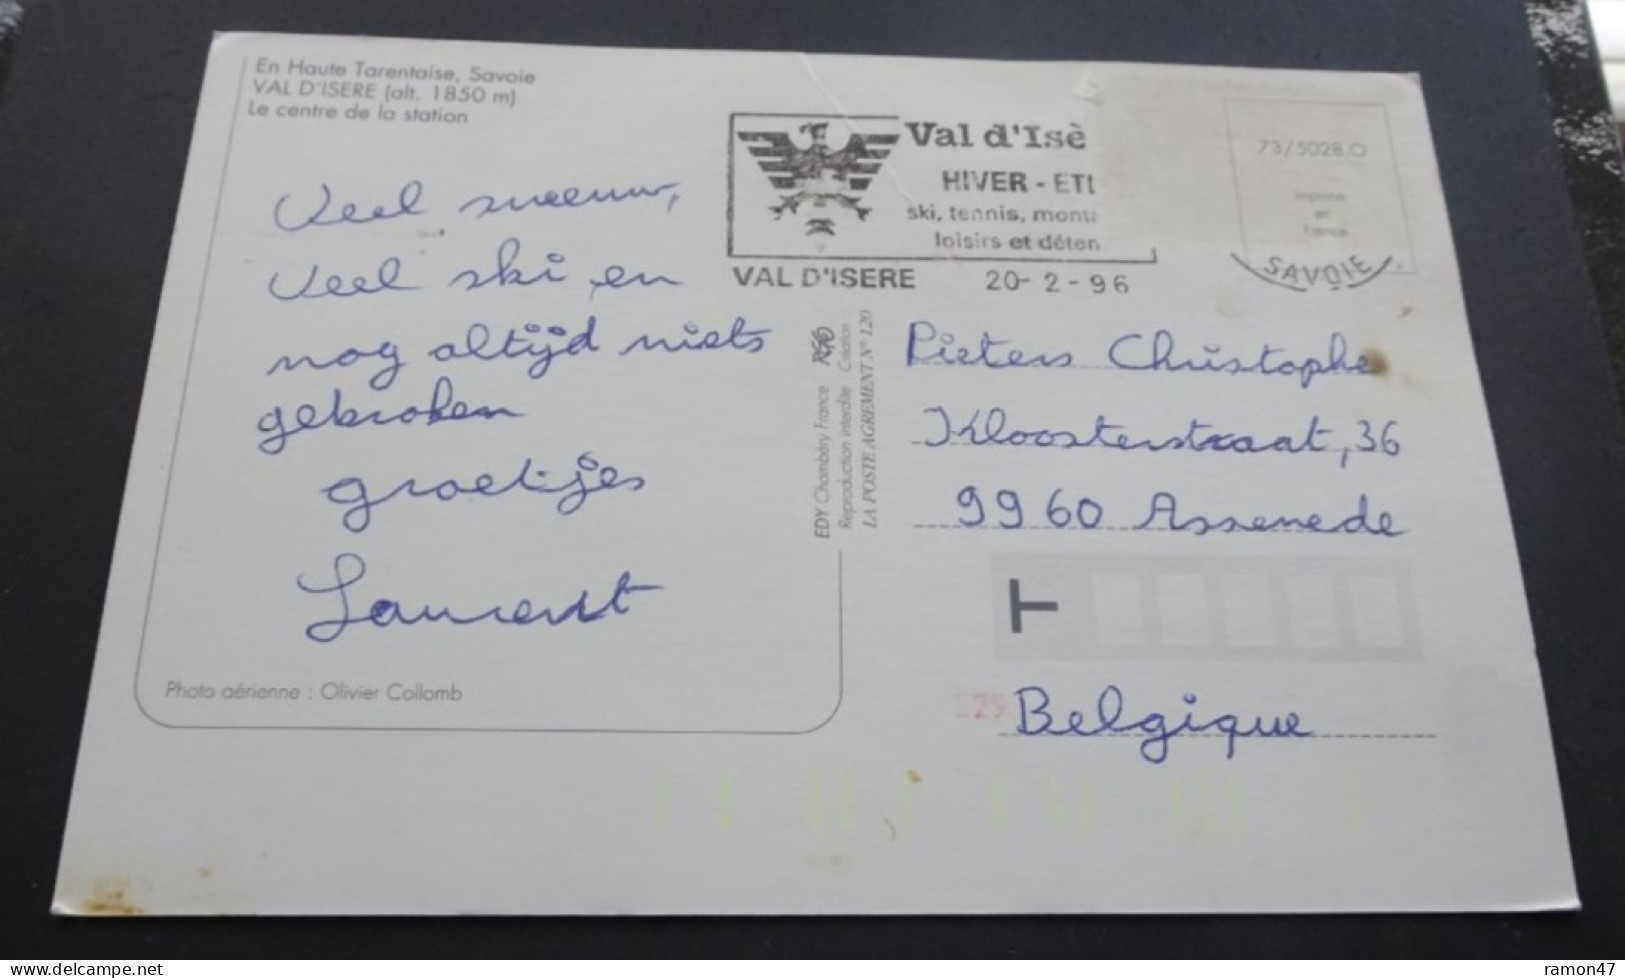 En Haute Tarentaise, Savoie
VAL D'ISERE (alt. 1850 m)
Le centre de la station
Veel sneeuw,
veel ski en
nog altijd niets
gebroken
groetjes
Laurent
Photo aérienne : Olivier Collomb
EDY Chambéry France
Reproduction interdite Création
LA POSTE AGREMENT N° 120
Val d'Isè
HIVER - ETE
ski, tennis, mont
loisirs et déten
VAL D'ISERE 20-2-96
SAVOIE
73/5028.O
imprimé
en
france
Pieters Christophe
Kloosterstraat, 36
9960 Assenede
T
29
Belgique
ramon47